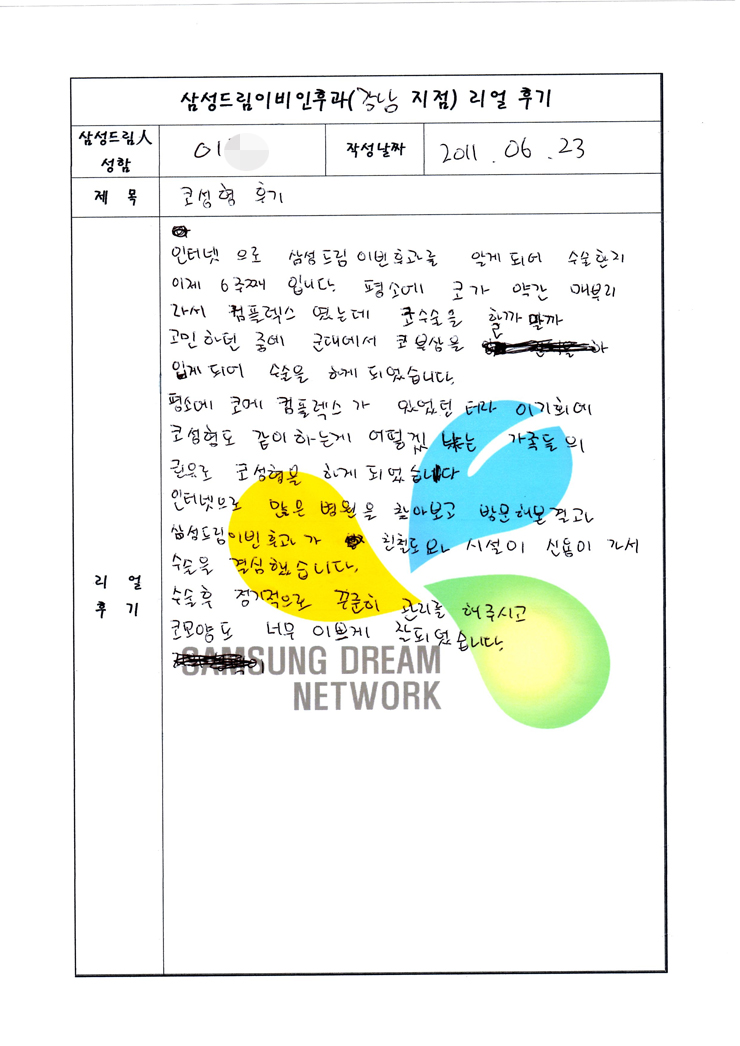 삼성드림이비인후과(강남 지점) 리얼 후기
삼성드림人
성함
이
작성날짜
2011. 06. 23
제 목
코성형 후기
리 얼
후 기
인터넷 으로 삼성드림이빈후과를 알게 되어 수술한지
이제 6주째 입니다. 평소에 코가 약간 매부리
라서 컴플렉스 였는데 코수술을 할까 말까
고민 하던 중에 군대에서 코 부상을
입게 되어 수술을 하게 되었습니다.
평소에 코에 컴플렉스가 있었던 터라 이기회에
코성형도 같이 하는게 어떻겠냐는 가족들의
권유로 코성형을 하게 되었습니다
인터넷으로 많은 병원을 찾아보고 방문해본결과
삼성드림이빈후과가 친철도와 시설이 신용이 가서
수술을 결심했습니다.
수술후 정기적으로 꾸준히 관리를 해주시고
코모양도 너무 이쁘게 잘되었습니다.
SAMSUNG DREAM
NETWORK